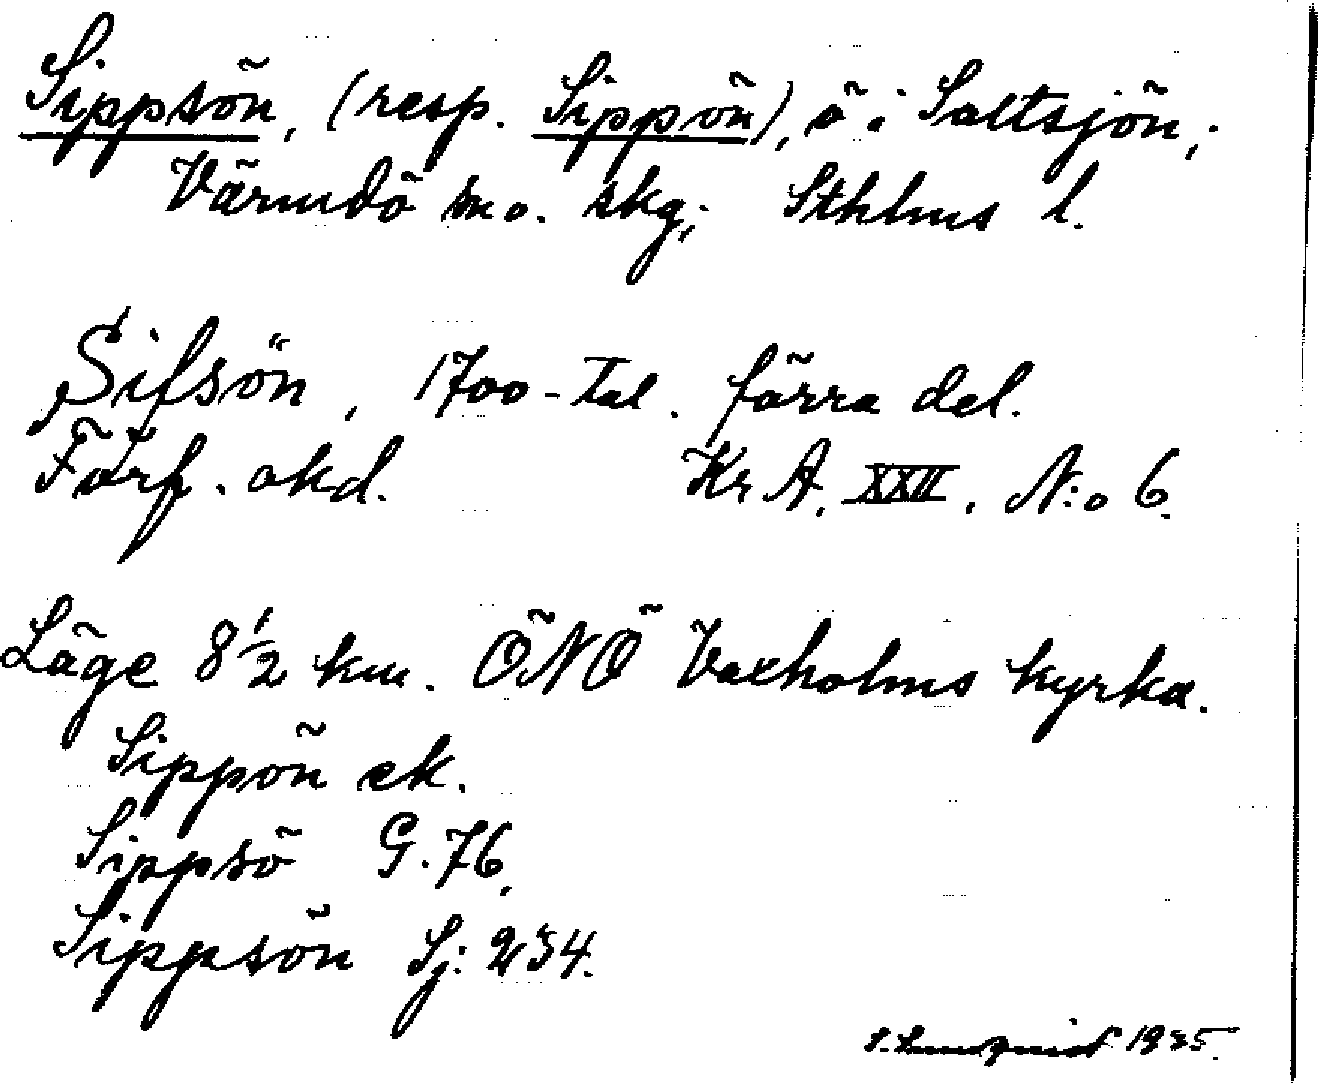 Sippsön, (resp. Sippön), ö i Saltsjön,;
Värmdö mo. skg;, Sthlms l.
Sifsön, 1700-tal. förra del.
Förf. okd. Kr A. XXII. N:o 6.
Läge 8 1/2 km. ÖNÖ Vaxholms kyrka.
Sippön ek.
Sippsö G. 76.
Sippsön Sj: 234.
S. Lundquist 1935.